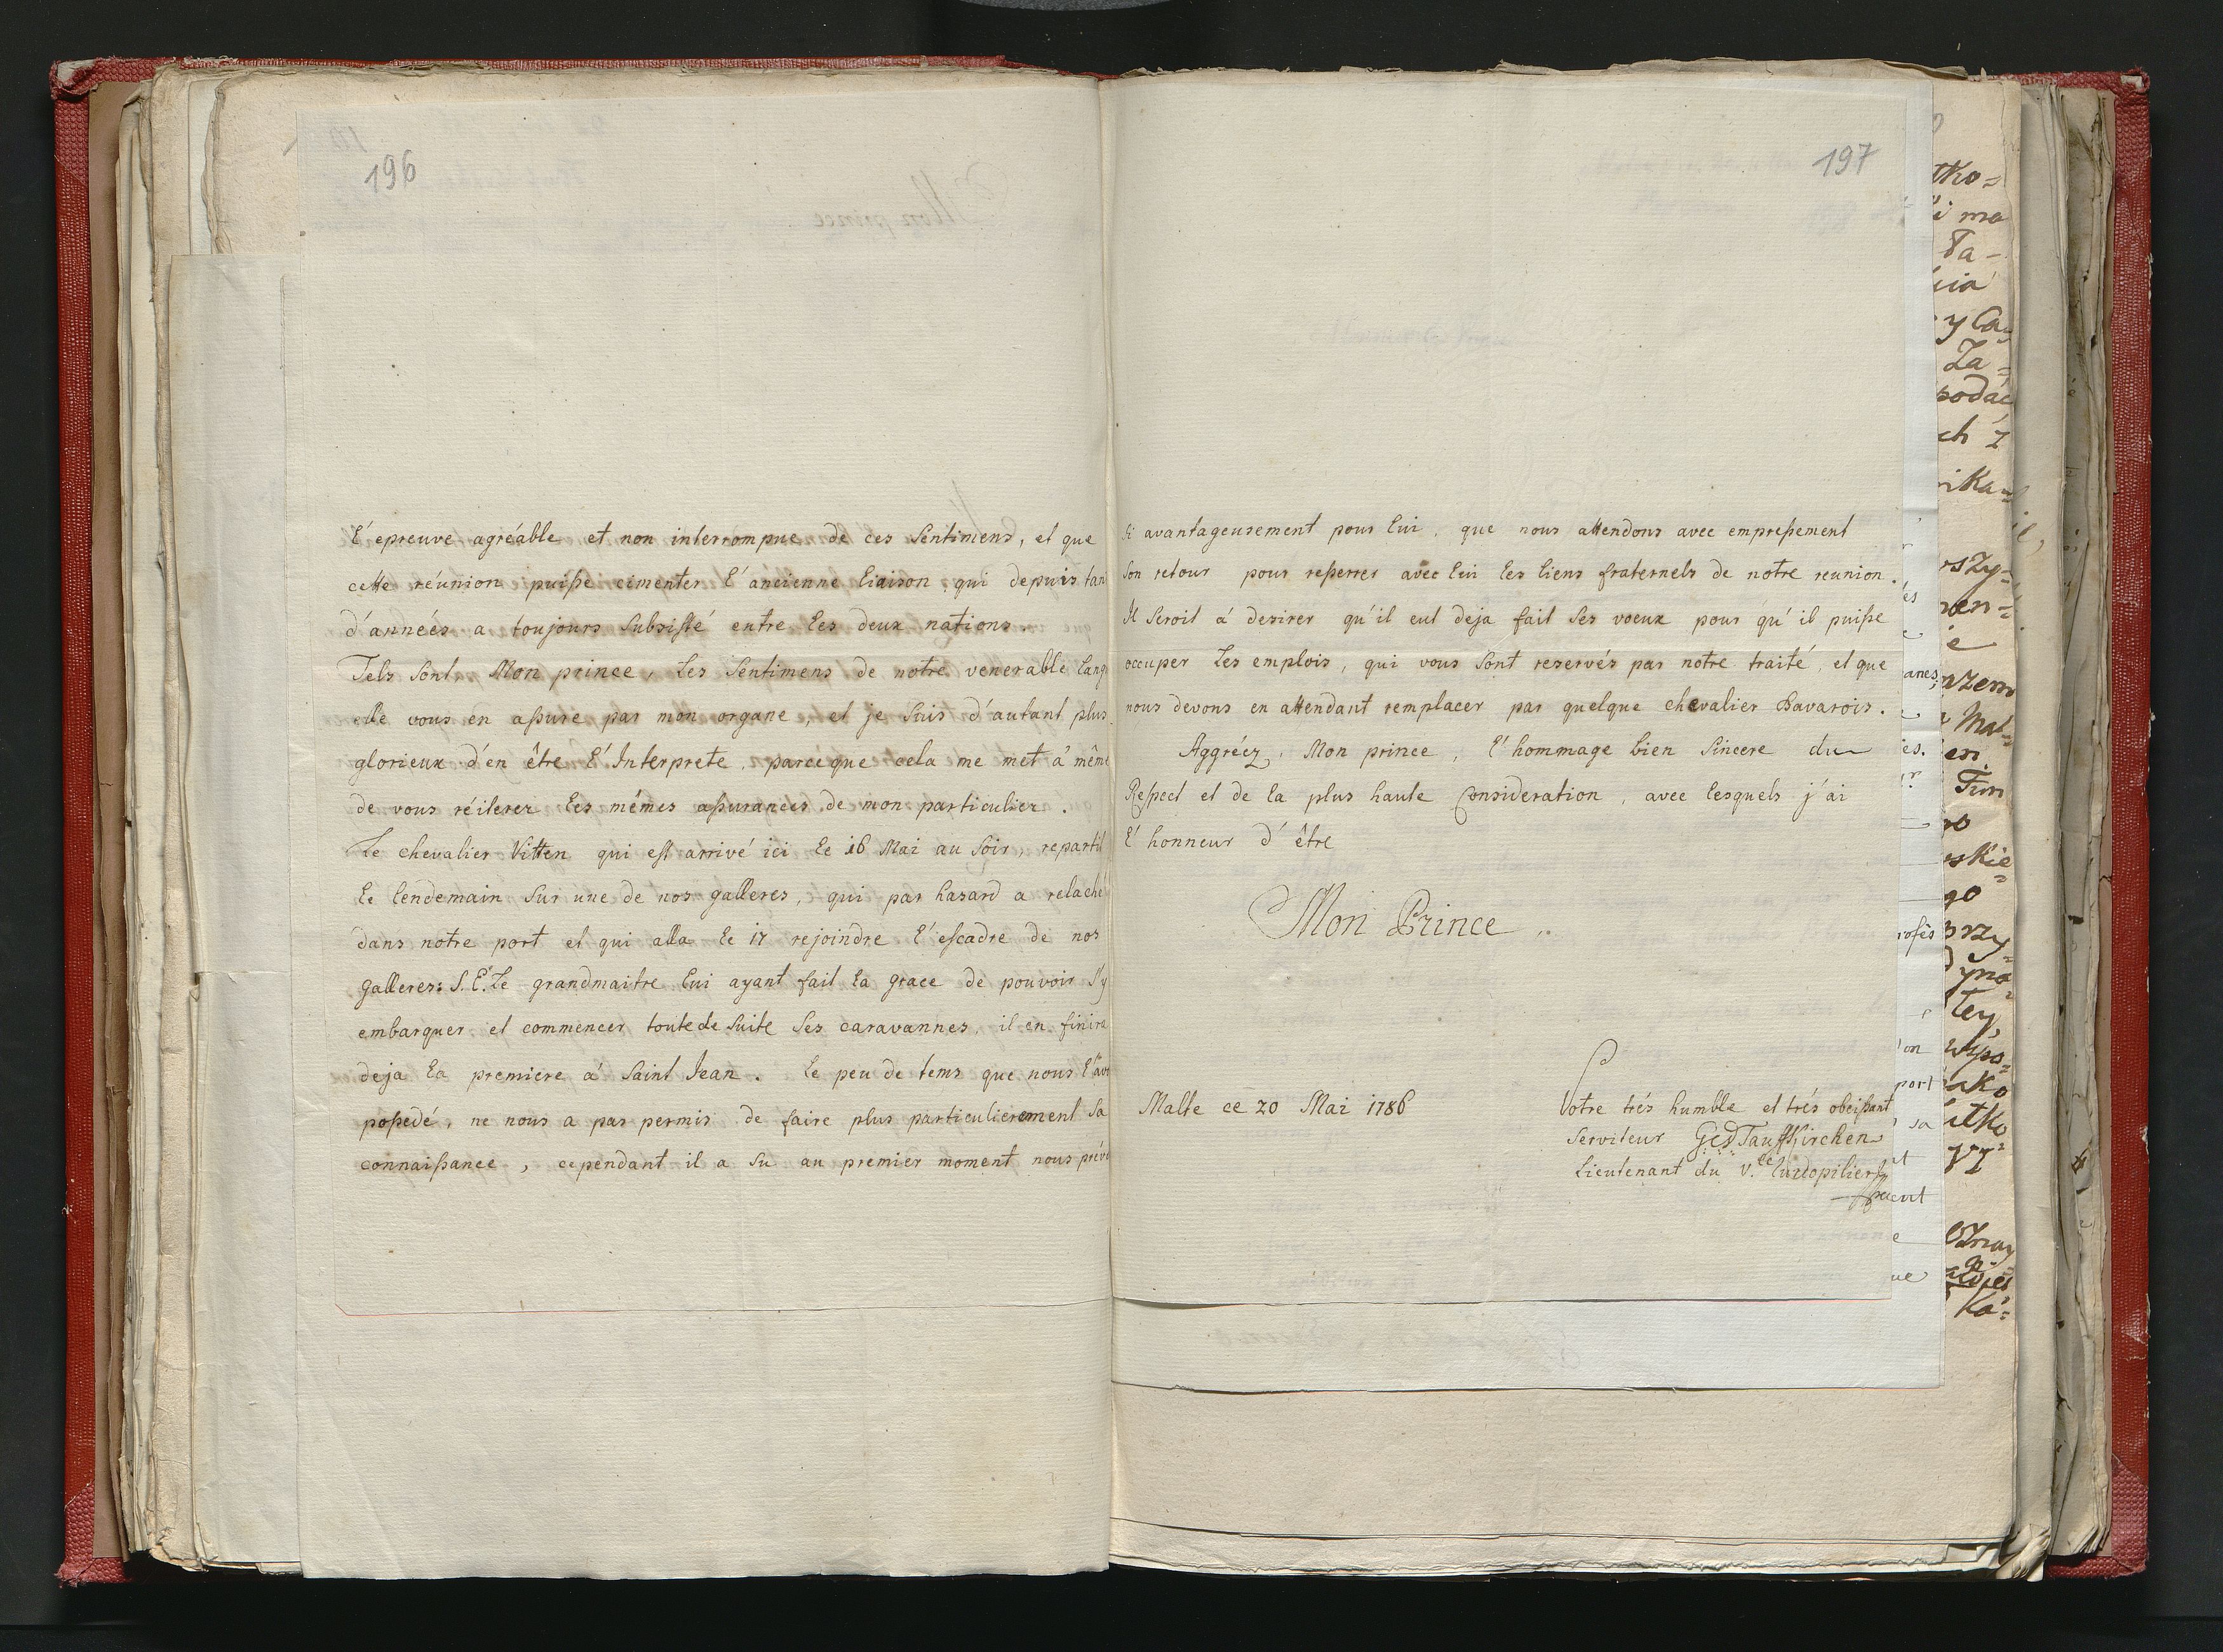 196
l'epreuve agréable et non interrompue de ces Sentimens, et que
cette réunion puisse cimenter l'ancienne liaison qui depuis tan
d'années a toujours Subsisté entre les deux nations.
Tels Sont, Mon prince, les Sentimens de notre venerable lang
elle vous en assure par mon organe, et je Suis d'autant plus
glorieux d'en être l'Interprete, parceque cela me met á même
de vous réiterer les mêmes assurances de mon particulier.
Le chevalier Vitten qui est arrivé ici le 16 Mai au Soir, repartit
le lendemain Sur une de nos galleres, qui par hasard a relaché
dans notre port et qui alla le 17 rejoindre l'escadre de nos
galleres: S. E. Le grandmaitre lui ayant fait la grace de pouvoir S'y
embarquer et commencer toute de Suite Ses caravannes, il en finira
deja la premiere á Saint Jean. Le peu de tems que nous l'av
possedé, ne nous a pas permis de faire plus particulierement Sa
connaissance, cependant il a Su au premier moment nous prév
197
Si avantageusement pour lui, que nous attendons avec empressement
Son retour pour resserrer avec lui les liens fraternels de notre reunion.
Il Seroit á desirer qu'il eut deja fait Ses voeux pour qu'il puisse
occuper Les emplois, qui vous Sont reservés par notre traité, et que
nous devons en attendant remplacer par quelque chevalier Bavarois.
Aggréez, Mon prince, l'hommage bien Sincere du
Respect et de la plus haute Consideration, avec lesquels j'ai
l'honneur d'être
Mon Prince
Malte ce 20 Mai 1786
Votre trés humble et trés obeissant
Serviteur Tauffkirchen
Lieutenant du V. turcopilier